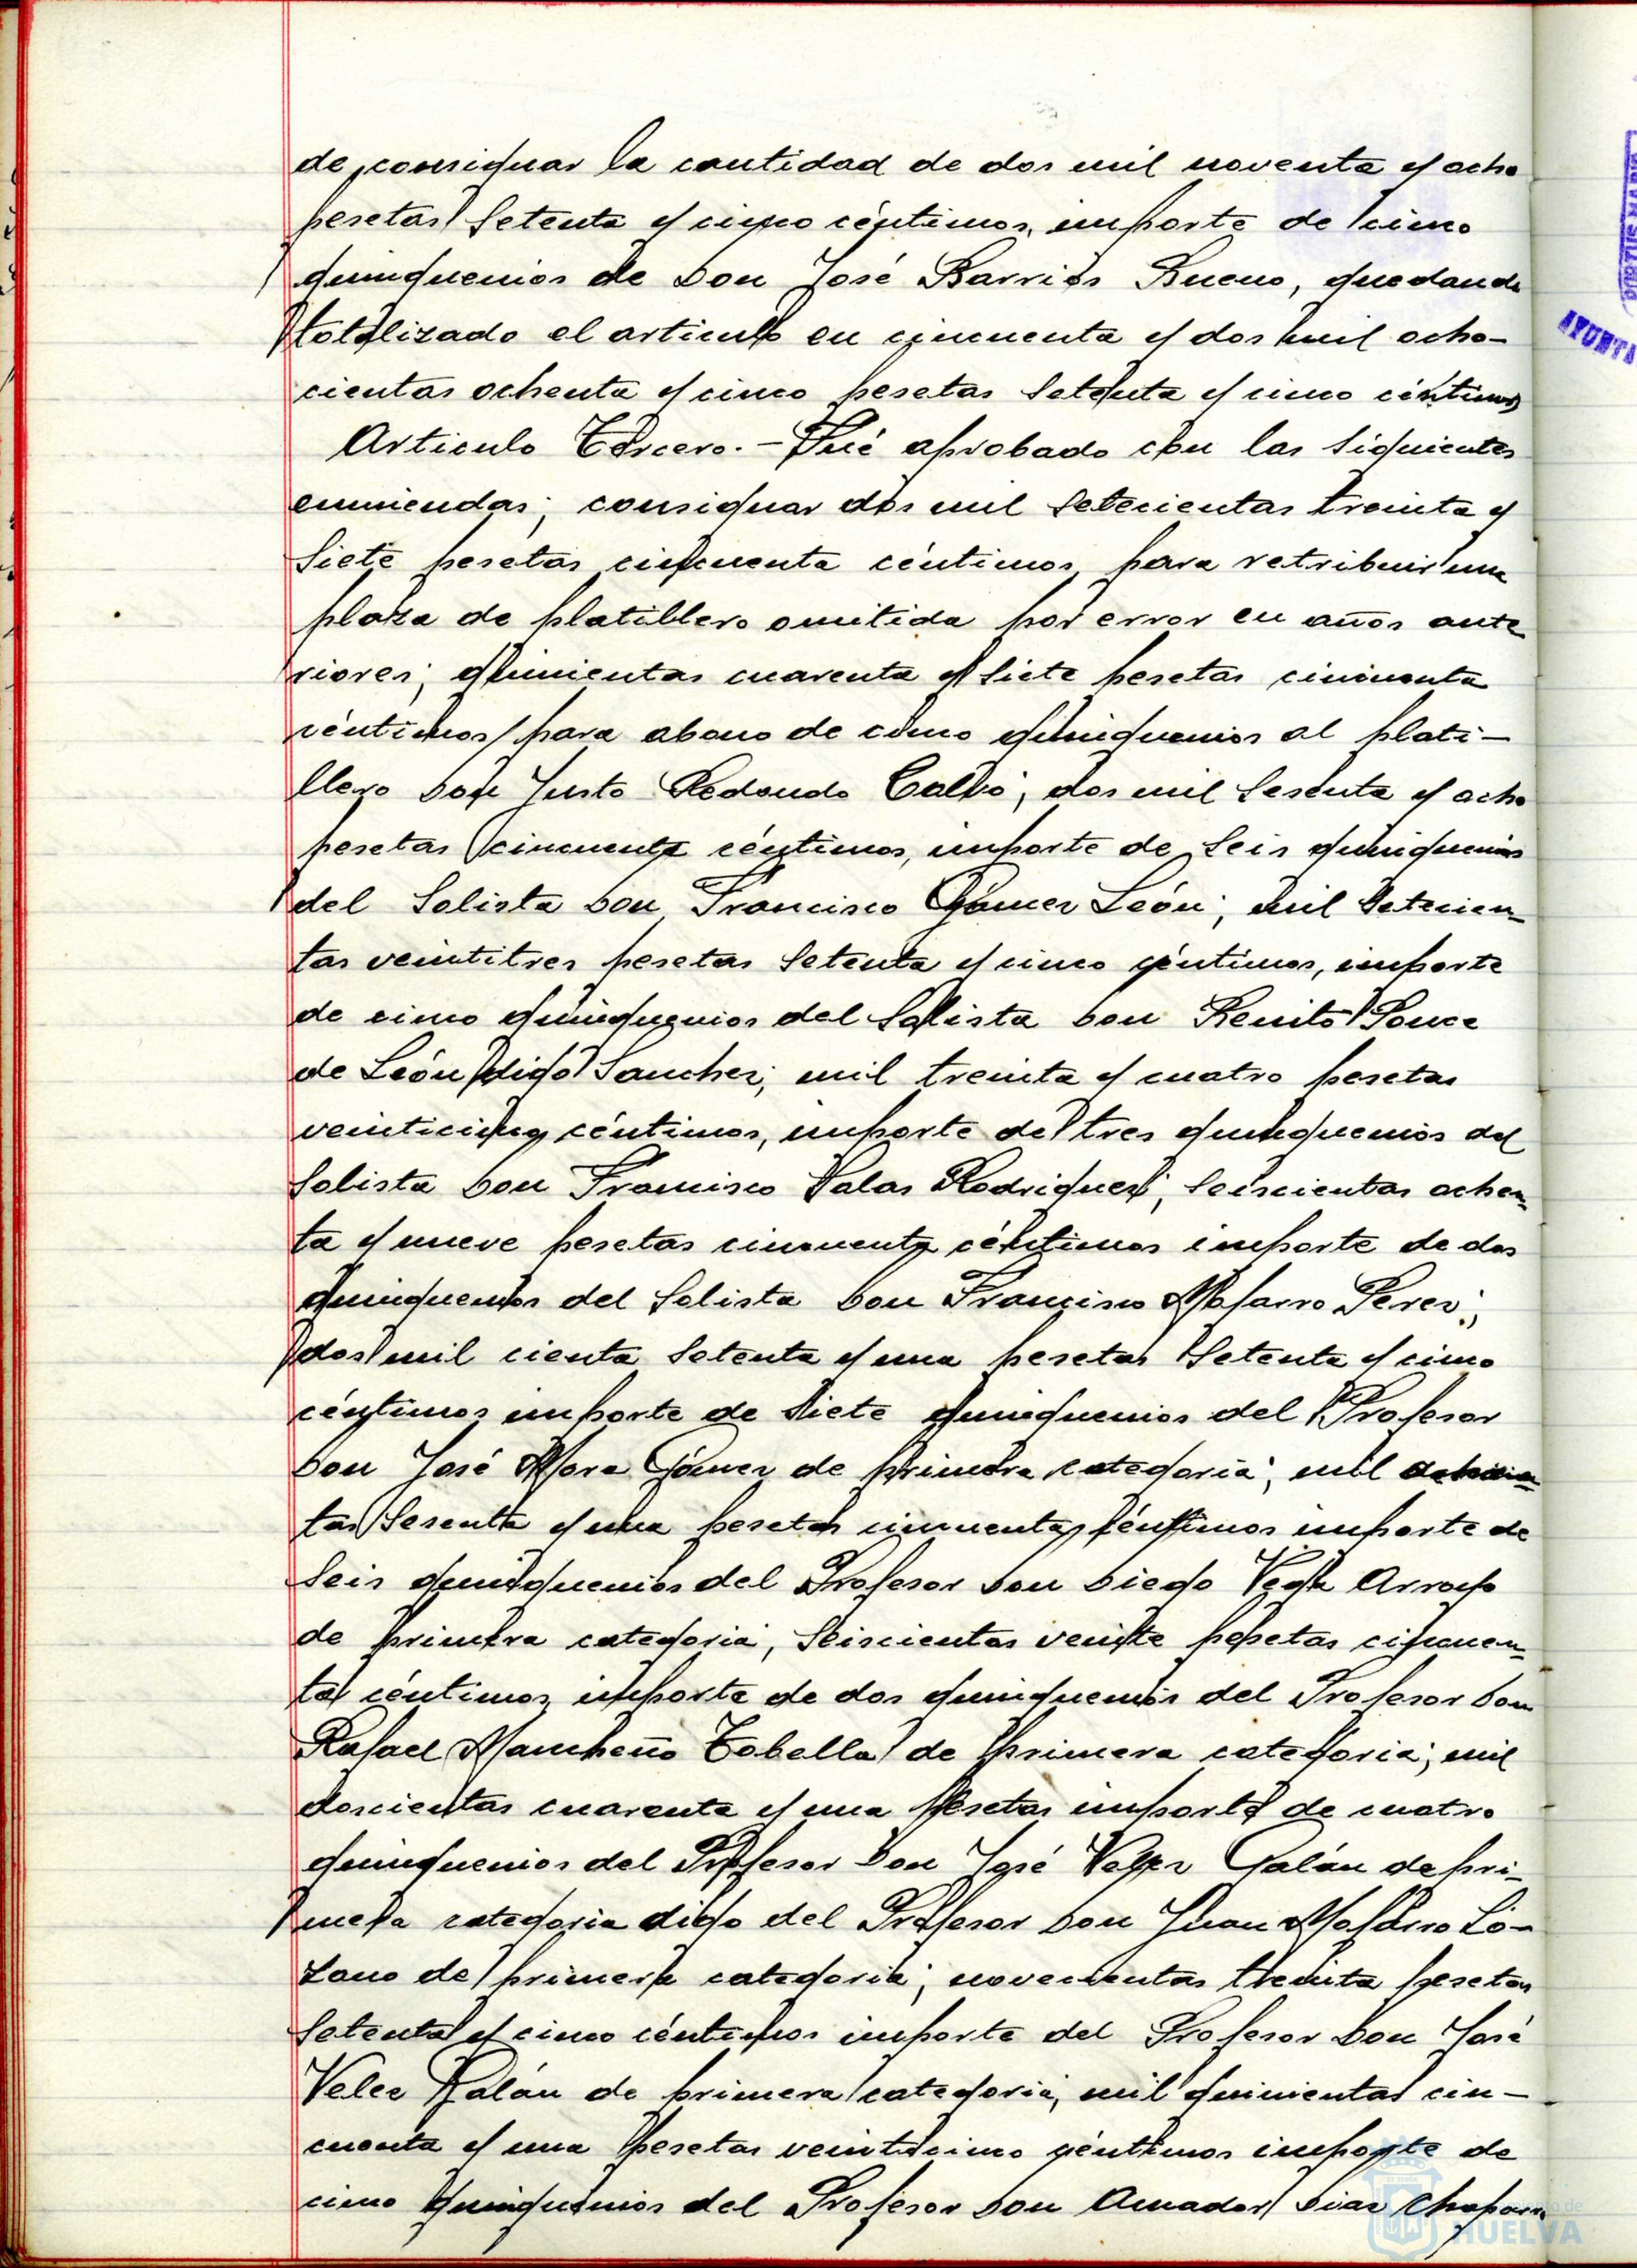 de consignar la cantidad de dos mil noventa y ocho
pesetas setenta y cinco céntimos, importe de cinco
quinquenios de Don José Barrios Bueno, quedando
totalizado el articulo en cincuenta y dos mil ocho-
cientas ochenta y cinco pesetas setenta y cinco céntimos
Articulo Tercero.- Fué aprobado con las siguientes
enmiendas; consignar dos mil setecientas treinta y
siete pesetas cincuenta céntimos para retribuir una
plaza de platillero omitida por error en años ante
riores; quinientas cuarenta y siete pesetas cincuenta
céntimos para abono de cinco quinquenios al plati-
llero Don Justo Redondo Calvo; dos mil sesenta y ocho
pesetas cincuenta céntimos, importe de seis quinquenios
del Solista Don Francisco Gómez León; mil setecien-
tas veintitres pesetas setenta y cinco céntimos, importe
de cinco quinquenios del Solista Don Benito Ponce
de León digo Sanchez; mil treinta y cuatro pesetas
veinticinco céntimos, importe de tres quinquenios del
Solista Don Francisco Salas Rodriguez; seiscientas ochen-
ta y nueve pesetas cincuenta céntimos importe de dos
quinquenios del Solista Don Francisco Mojarro Perez;
dos mil cienta setenta y una pesetas setenta y cinco
céntimos importe de siete quinquenios del Profesor
Don José Mora Gómez de primera categoria; mil
tas sesenta y una pesetas cincuenta céntimos importe de
seis quinquenios del Profesor Don Diego Vega Arroyo
de primera categoria; seiscientas veinte pesetas cincuen-
ta céntimos importe de dos quinquenios del Profesor Don
Rafael Mancheño Tobella de primera categoria; mil
doscientas cuarenta y una pesetas importe de cuatro
quinquenios del Profesor Don José Velez Galán de pri-
mera categoria digo del Profesor Don Juan Mojarro Lo-
zano de primera categoria; novecientas treinta pesetas
setenta y cinco céntimos importe del Profesor Don José
Velez Galán de primera categoria; mil quinientas cin-
cuenta y una pesetas veinticinco céntimos importe de
cinco quinquenios del Profesor Don Amador Diaz Chaparro
AYUNTA
HUELVA